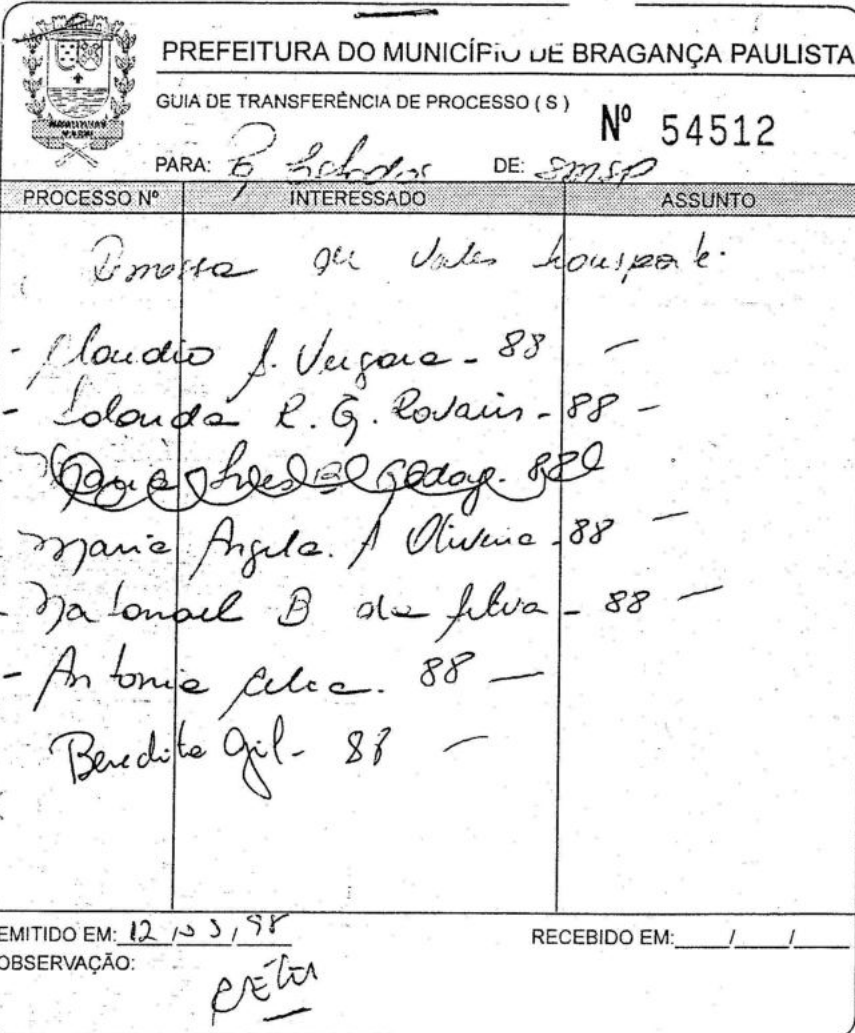 PREFEITURA DO MUNICÍPIO DE BRAGANÇA PAULISTA
GUIA DE TRANSFERÊNCIA DE PROCESSO ( S )
Nº 54512
PARA: DE: SMSP
PROCESSO Nº INTERESSADO ASSUNTO
Remessa de Vales transporte.
- Claudio A. Vergara - 88 -
- Iolanda R. G. - 88 -
Maria Godoy. 88
Maria Angela. A Oliveira - 88 -
- Natanael B da Silva - 88 -
- Antonia Celia. 88 -
Benedita Gil - 88 -
EMITIDO EM: 12 / 03 / 98 RECEBIDO EM: / /
OBSERVAÇÃO: